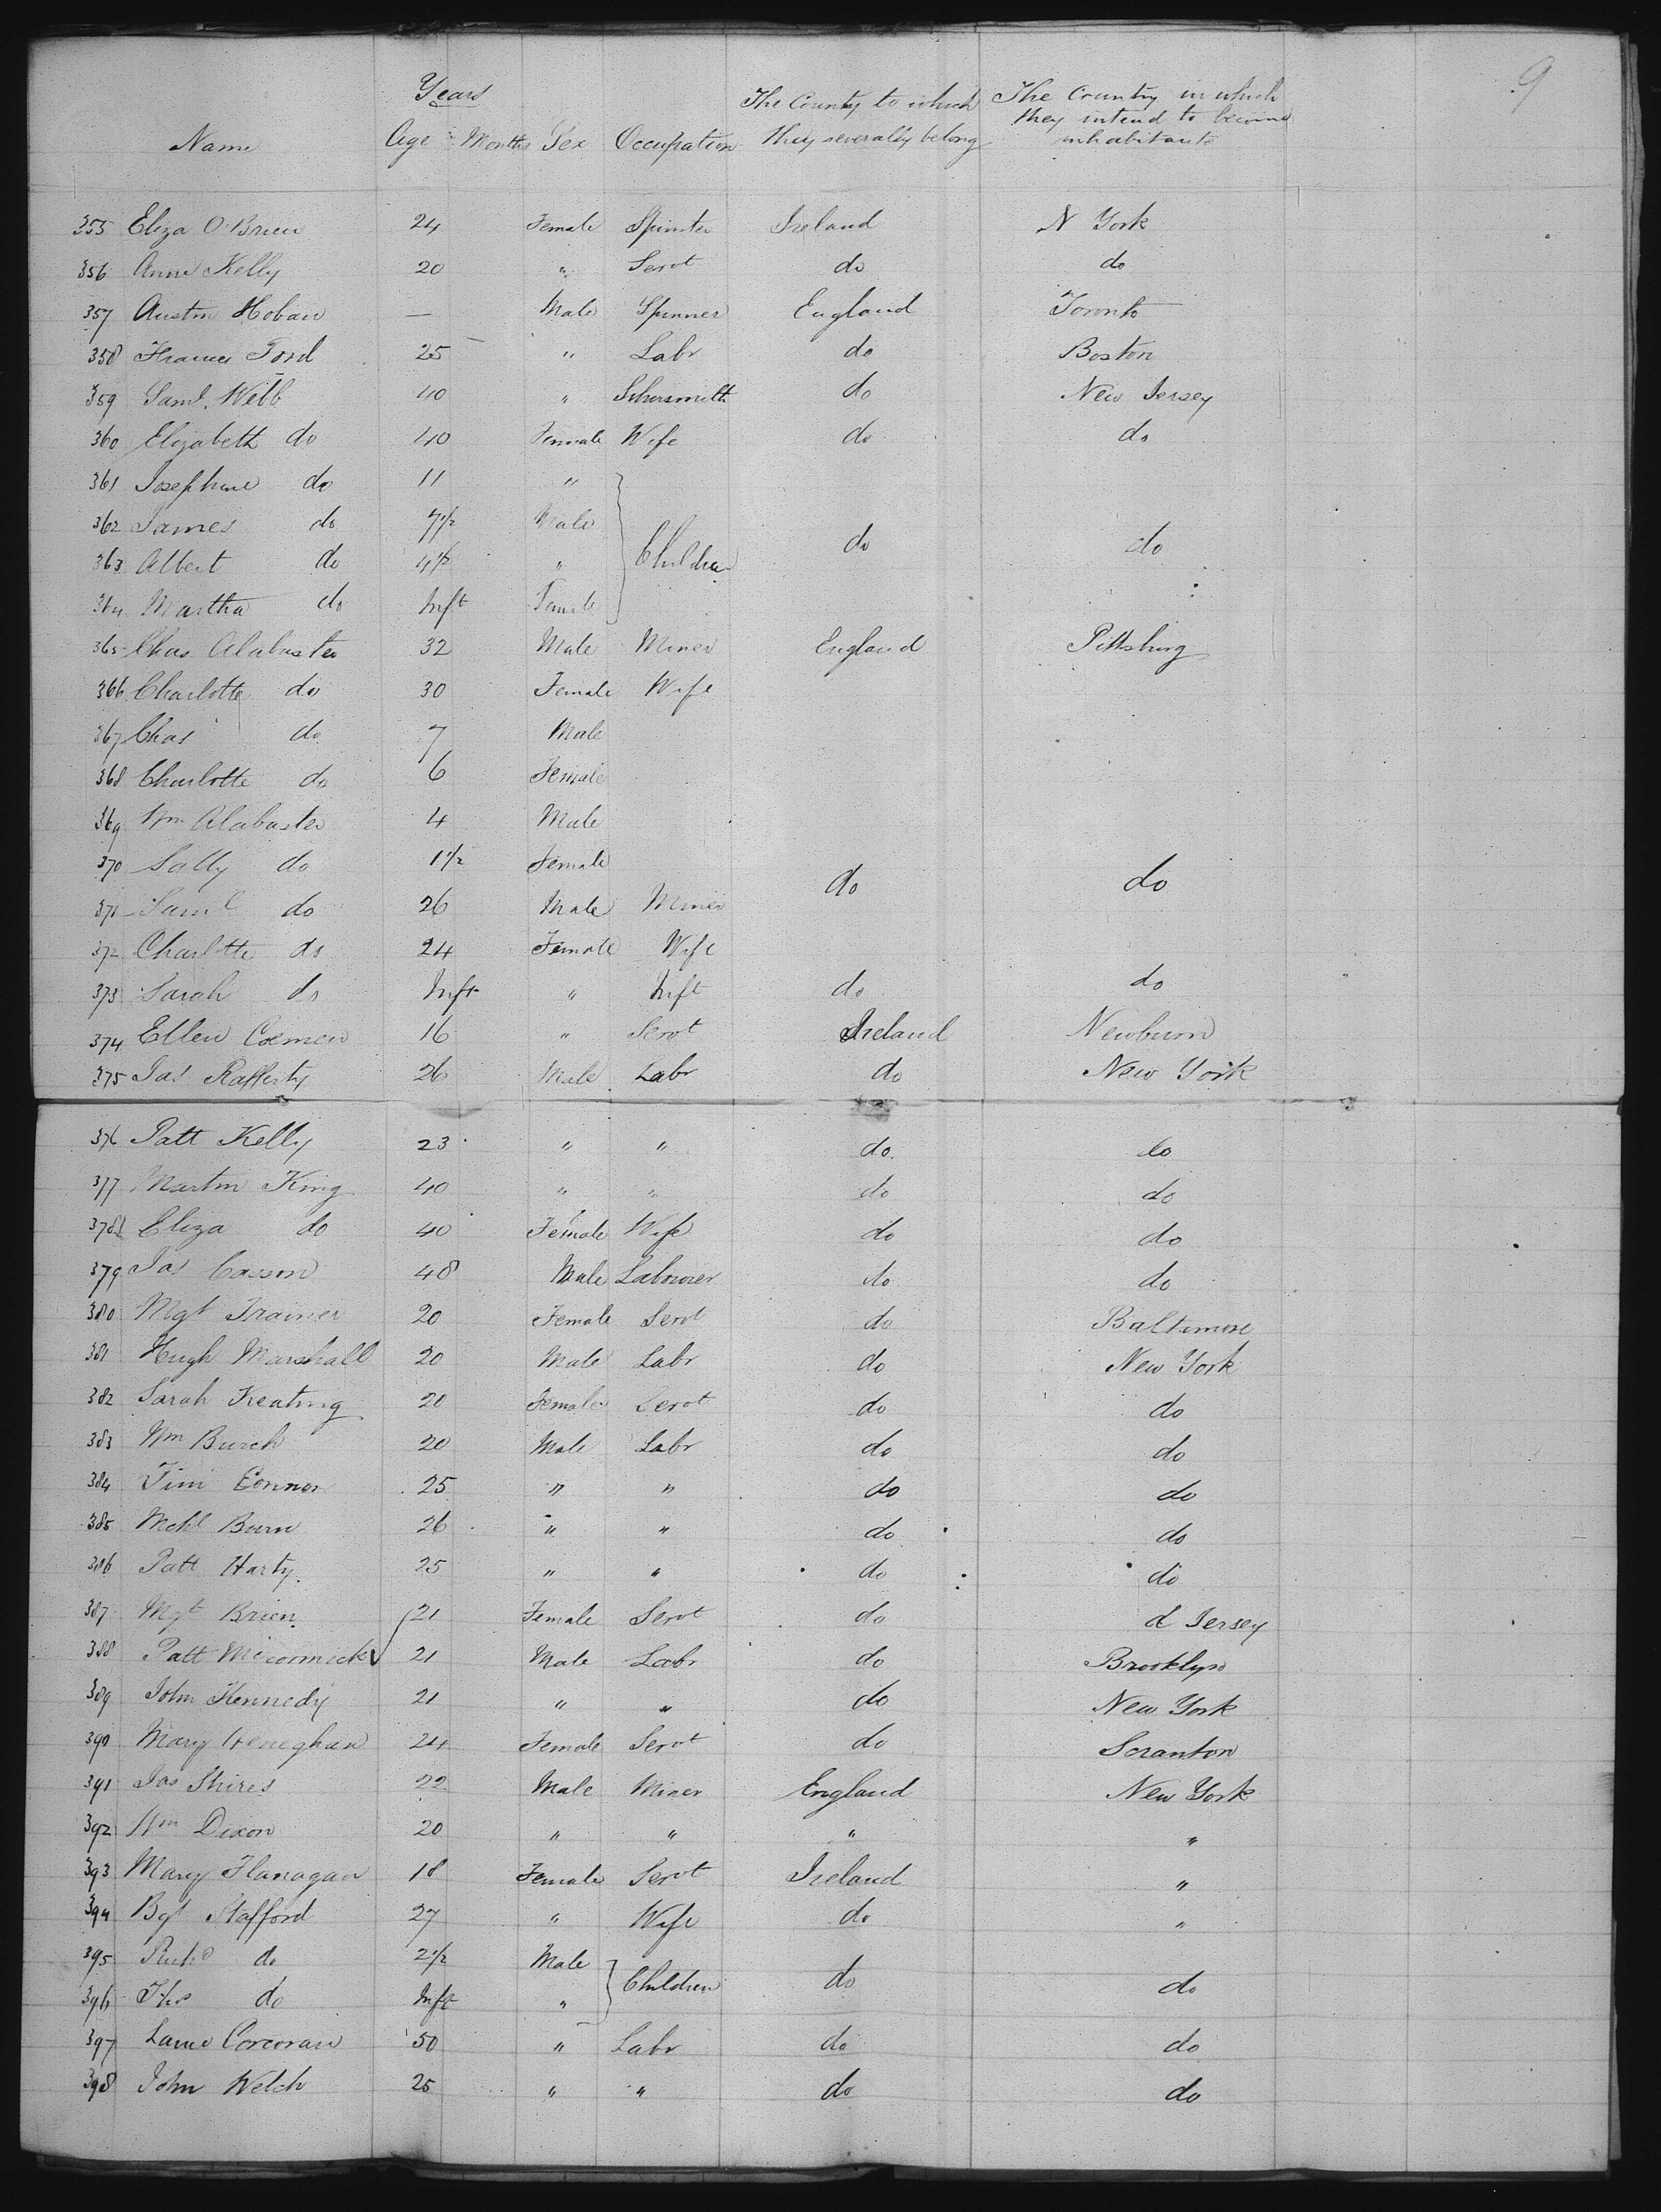 9
Years
Name Age Months Sex Occupation The County to which they severally belong The Country in which they intend to become inhabitants
355 Eliza O'Brien 24 Female Spinster Ireland N York
356 Anne Kelly 20 " Servt do do
357 Austin Hoban — Male Spinner England Toronto
358 Frances Ford 25 " Labr do Boston
359 Saml. Webb 40 " Silversmith do New Jersey
360 Elizabeth do 40 Female Wife do do
361 Josephine do 11 "
362 James do 7½ Male
363 Albert do 4½ " Children do do
364 Martha do Inft Female
365 Chas Alabaster 32 Male Miner England Pittsburg
366 Charlotte do 30 Female Wife
367 Chas do 7 Male
368 Charlotte do 6 Female
369 Wm Alabaster 4 Male
370 Sally do 1½ Female do do
371 Saml do 26 Male Miner
372 Charlotte do 24 Female Wife
373 Sarah do Inft " Inft do do
374 Ellen 16 " Servt Ireland Newburn
375 Jas Rafferty 26 Male Labr do New York
376 Patt Kelly 23 " " do do
377 Martin King 40 " " do do
378 Eliza do 40 Female Wife do do
379 Jas Casson 48 Male Labourer do do
380 Mgt Trainer 20 Female Servt do Baltimore
381 Hugh Marshall 20 Male Labr do New York
382 Sarah Keating 20 Female Servt do do
383 Wm Burch 20 Male Labr do do
384 Tim Connor 25 " " do do
385 Mchl Burn 26 " " do do
386 Patt Harty 25 " " do do
387 Mgt Brien 21 Female Servt do d Jersey
388 Patt McCormick 21 Male Labr do Brooklyn
389 John Kennedy 21 " " do New York
390 Mary Heneghan 24 Female Servt do Scranton
391 Jas Shires 22 Male Miner England New York
392 Wm Dixon 20 " " " "
393 Mary Flanagan 18 Female Servt Ireland "
394 Bgt Stafford 27 " Wife do "
395 Richd do 2½ Male Children do do
396 Thos do Inft "
397 Corcoran 50 " Labr do do
398 John Welch 25 " " do do